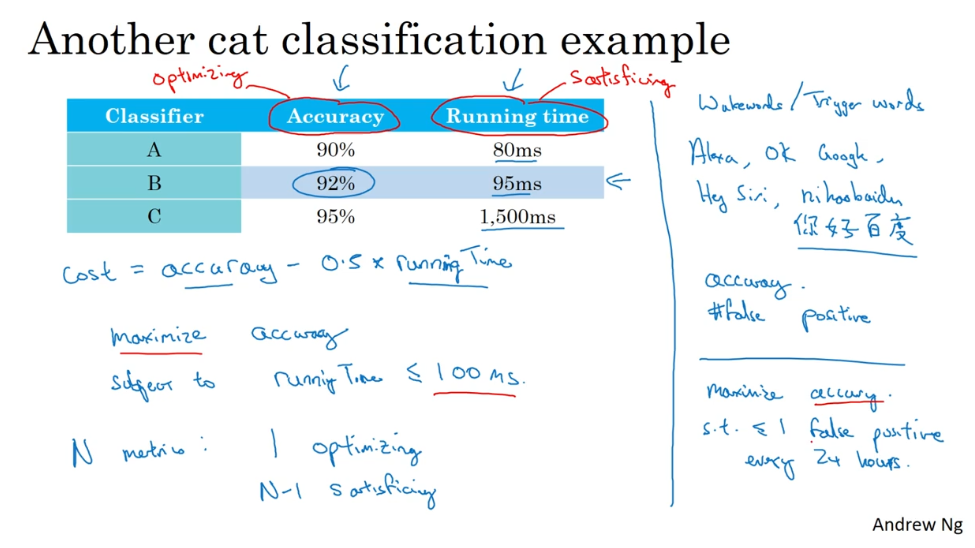 Another cat classification example
Optimizing
Satisficing
Classifier Accuracy Running time
A 90% 80ms
B 92% 95ms
C 95% 1,500ms
cost = accuracy - 0.5 x running Time
maximize accuracy
subject to running Time ≤ 100 ms.
N metrics: 1 optimizing
N-1 satisficing
Wakewords / Trigger words
Alexa, OK Google,
Hey Siri, nihaobaidu
你好百度
accuracy.
#false positive
maximize accuracy.
s.t. ≤ 1 false positive
every 24 hours.
Andrew Ng